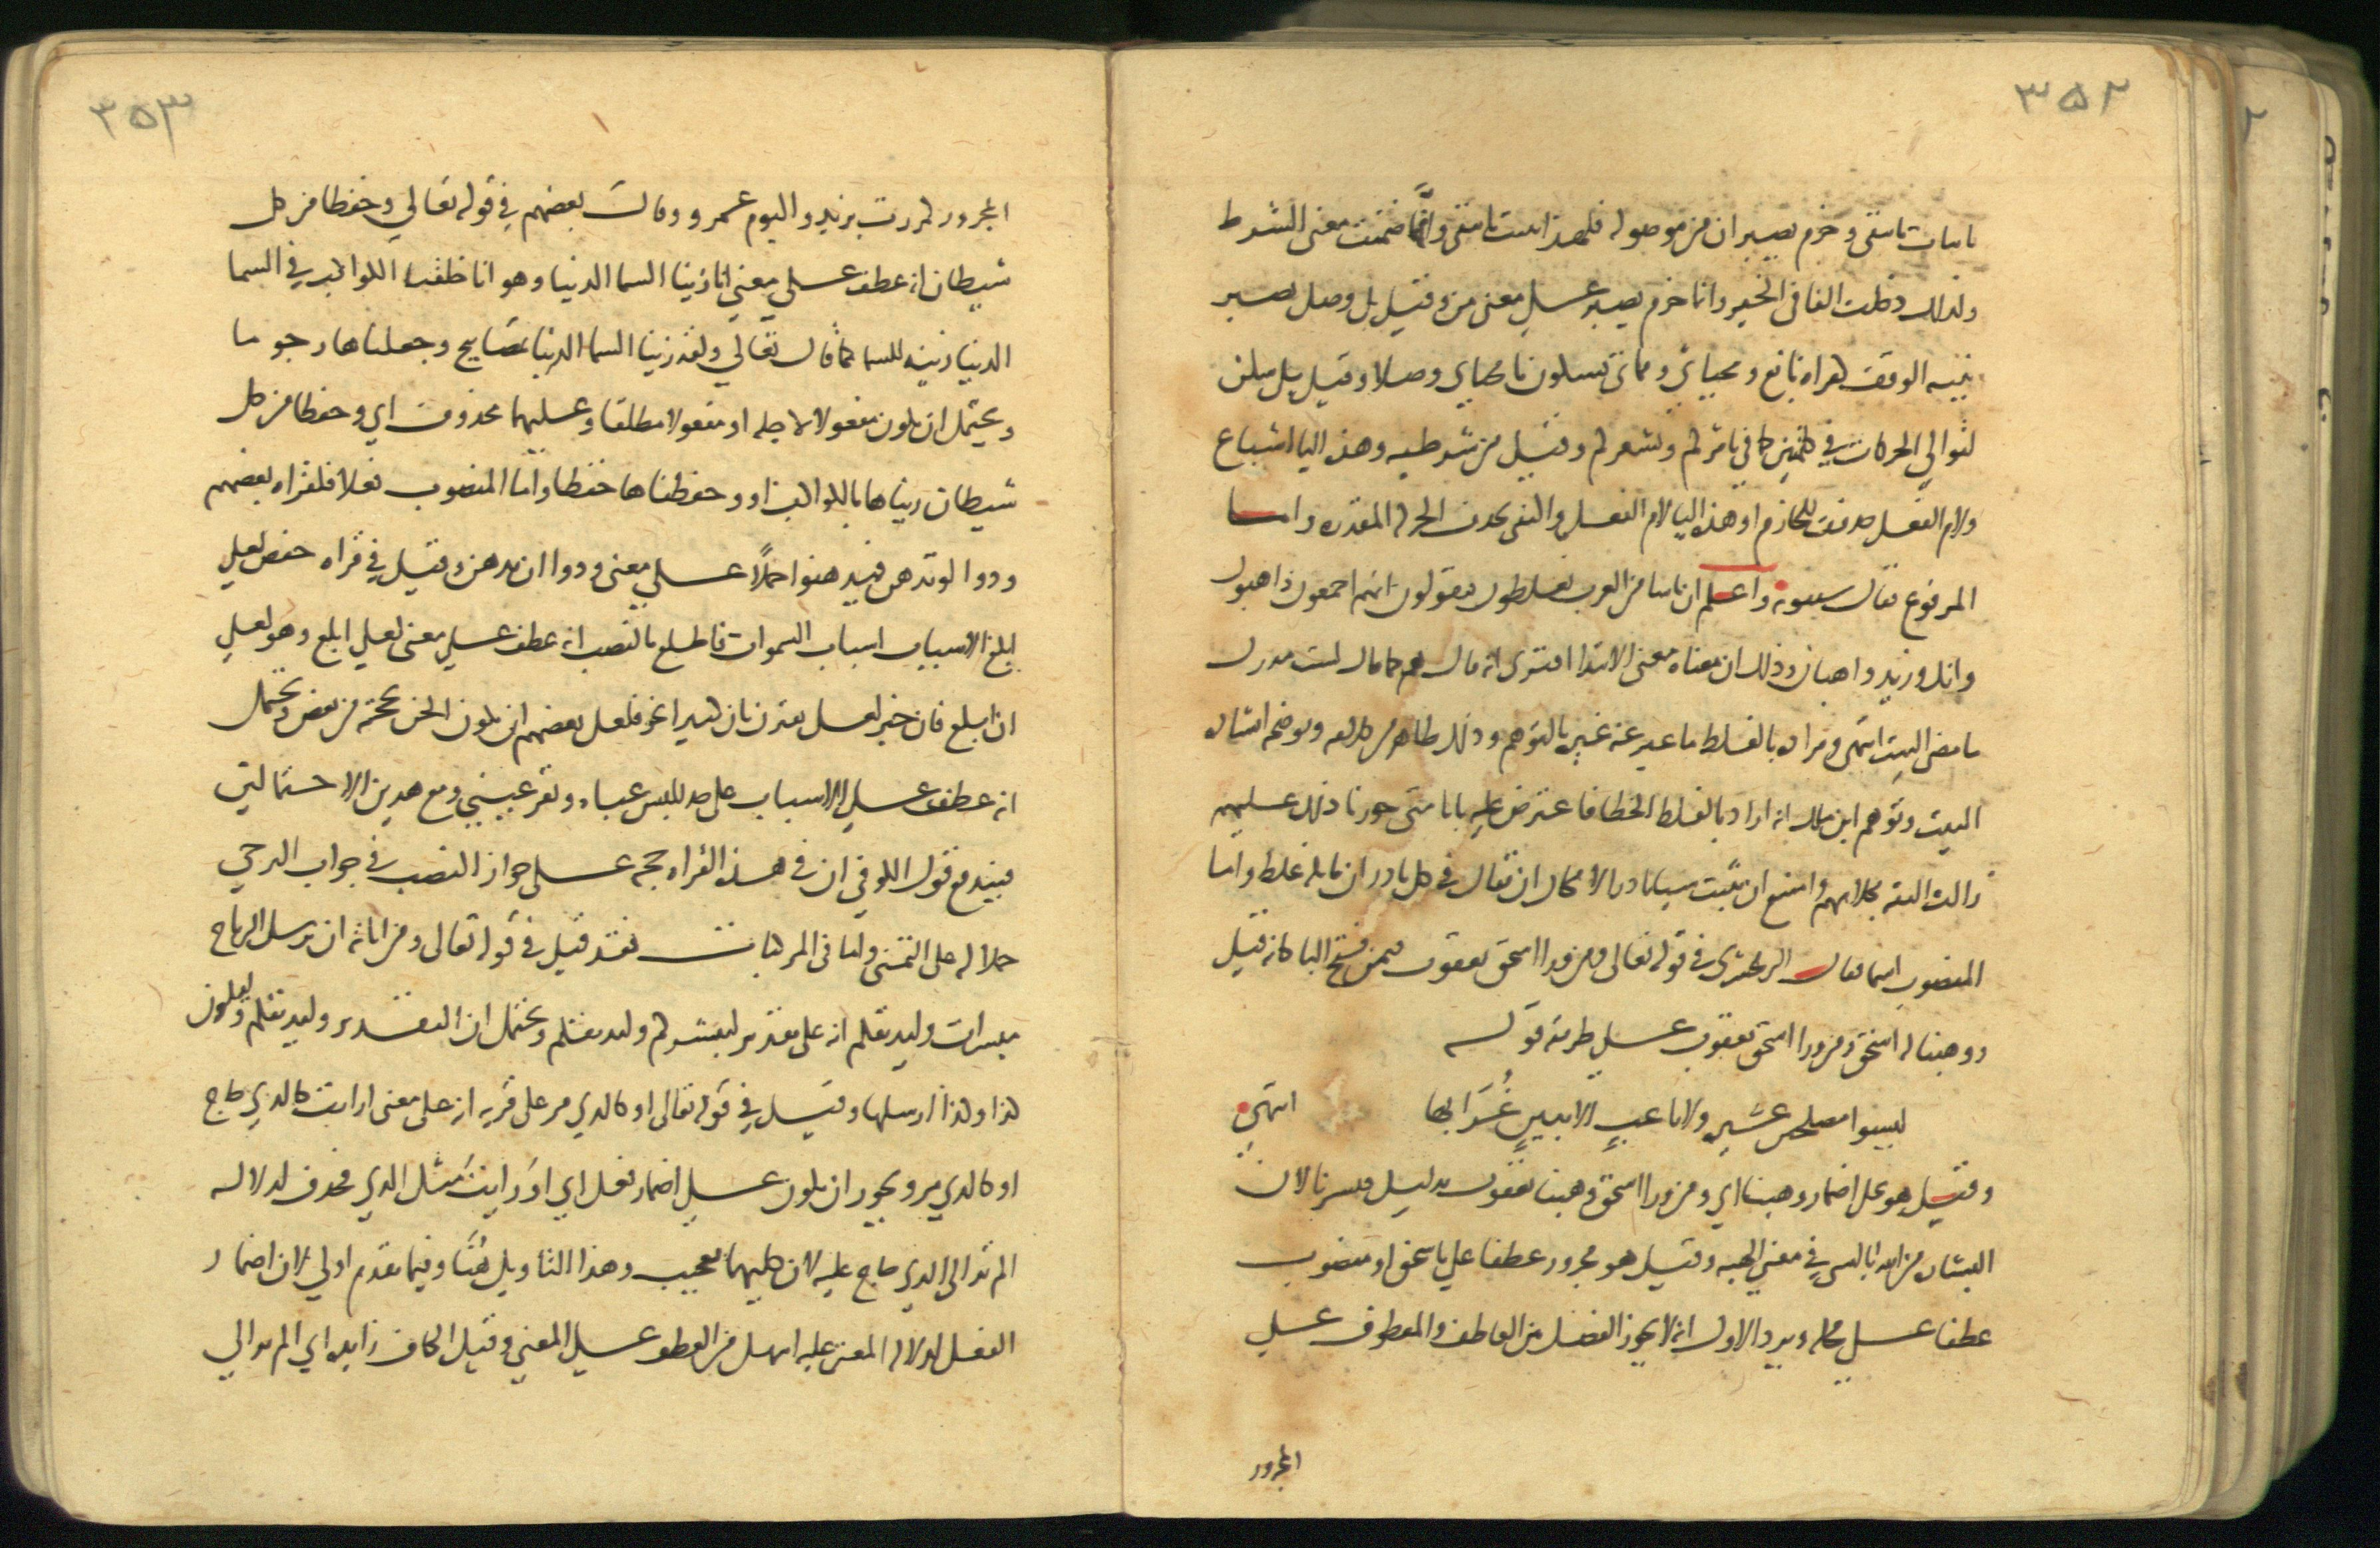 ٣٥٢
باثبات يا يتقى وجزم يصبر ان من موصولة فلهذا ثبتت يا يتقى وانها ضمنت معنى الشرط
ولذلك دخلت الفا في الخبر وانما جزم يصبر على معنى من وقيل بل وصل يصبر
بنية الوقف كقراة نافع ومحياي ومماتي بسكون يا محياي وصلا وقيل بل سكن
لتوالي الحركات في كلمتين كما في يامركم ويشعركم وقيل من شرطية وهذه اليا اشباع
ولام الفعل حذفت للجازم او هذه اليا لام الفعل واكتفى بحذف الحركة المقدرة واما
المرفوع فقال سيبويه واعلم ان ناسا من العرب يغلطون فيقولون انهم اجمعون ذاهبون
وانك وزيد ذاهبان وذلك ان معناه معنى الابتدا فترى انه قال هم كما قال لست مدرك
ما مضى البيت انتهى ومراده بالغلط ما عبر عنه غيره بالتوهم وذلك ظاهر من كلامه ويوضحه انشاده
البيت وتوهم ابن مالك انه اراد بالغلط الخطا فاعترض عليه بانا متى جوزنا ذلك عليهم
زالت الثقة بكلامهم وامتنع ان نثبت شيا نادرا لامكان ان يقال في كل نادر ان قايله غلط واما
المنصوب اسما فقال الزمخشري في قوله تعالى ومن ورا اسحق يعقوب فيمن فتح البا كانه قيل
ووهبنا له اسحق ومن ورا اسحق يعقوب على طريقة قوله
ليسوا مصلحين عشيرة ولا ناعبٍ الا ببينٍ غُرَابها انتهى
وقيل هو على اضمار وهبنا اي ومن ورا اسحق وهبنا يعقوب بدليل فبشرناها لان
البشارة من الله بالشي في معنى الهبة وقيل هو مجرور عطفا على باسحق او منصوب
عطفا على محله ويرد الاول انه لا يجوز الفصل بين العاطف والمعطوف على
المجرور
٣٥٣
المجرور كمررت بزيد واليوم عمرو وقال بعضهم في قوله تعالى وحفظا من كل
شيطان انه عطف على معنى انا زينا السما الدنيا وهو انا خلقنا الكواكب في السما
الدنيا زينة للسما كما قال تعالى ولقد زينا السما الدنيا بمصابيح وجعلناها رجوما
ويحتمل ان يكون مفعولا لاجله او مفعولا مطلقا وعليهما محذوف اي وحفظا من كل
شيطان زيناها بالكواكب او وحفظناها حفظا واما المنصوب فعلا فكقراة بعضهم
ودوا لو تدهن فيدهنوا حملًا على معنى ودوا ان تدهن وقيل في قراة حفص لعلي
ابلغ الاسباب اسباب السموات فاطلع بالنصب انه عطف على معنى لعلي ابلغ وهو لعلي
ان ابلغ فان خبر لعل يقترن بان كثيرا نحو فلعل بعضهم ان يكون الحن بحجته من بعض ويحتمل
انه عطف على الاسباب على حد للبس عباة وتقر عيني ومع هذين الاحتمالين
فيندفع قول الكوفي ان في هذه القراة حجة على جواز النصب في جواب الترجي
حملا له على التمني واما في المركبات فقد قيل في قوله تعالى ومن اياته ان يرسل الرياح
مبشرات وليذيقكم انه على تقدير ليبشركم وليذيقكم ويحتمل ان التقدير وليذيقكم وليكون
كذا وكذا ارسلها وقيل في قوله تعالى او كالذي مر على قرية انه على معنى ارايت كالذي حاج
او كالذي مر ويجوز ان يكون على اضمار فعل اي او رايت مثل الذي فحذف لدلالة
الم تر الى الذي حاج عليه لان كليهما تعجيب وهذا التاويل هُنا وفيما تقدم اولى لان اضمار
الفعل لدلالة المعنى عليه اسهل من العطف على المعنى وقيل الكاف زايدة اي الم تر الى